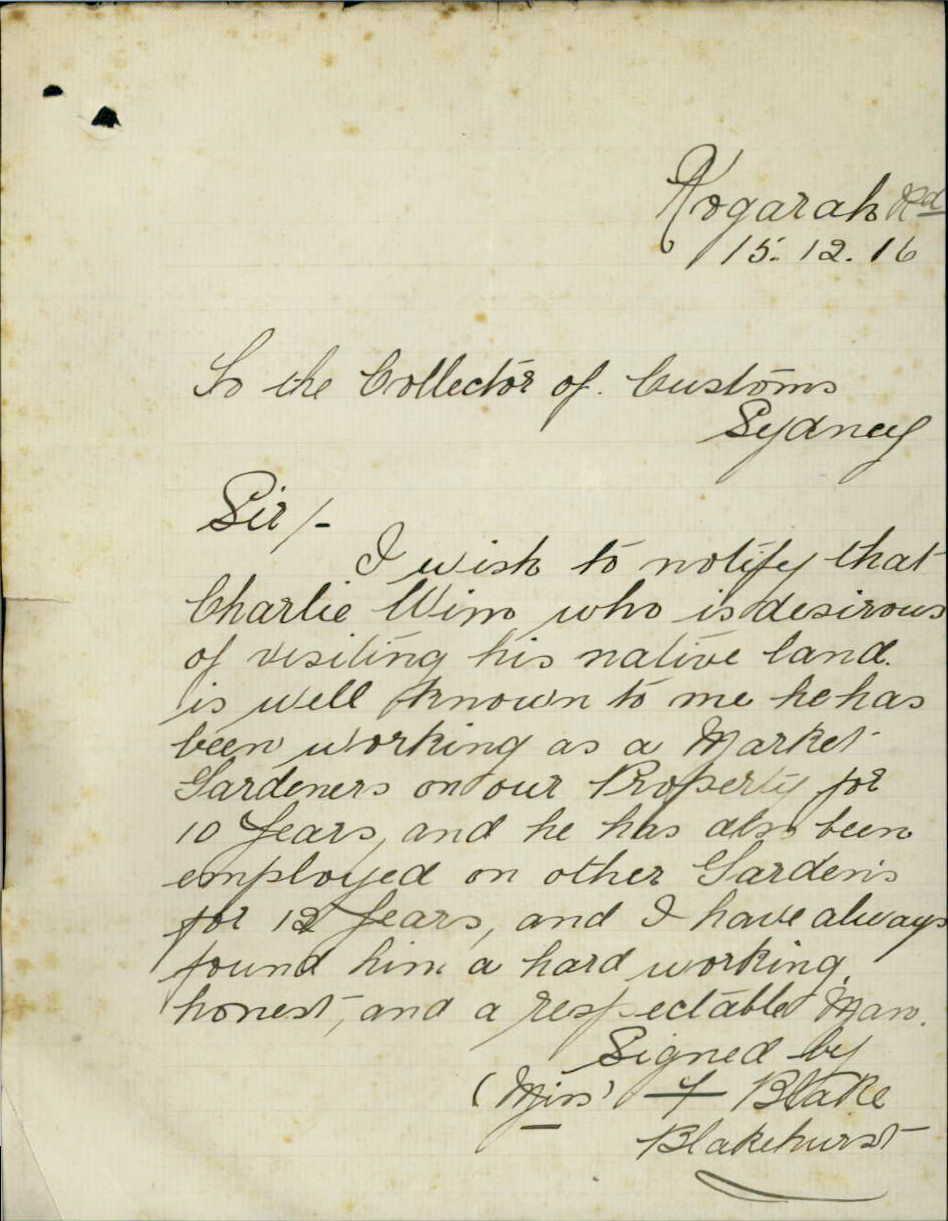 Kogarah Rd
15. 12. 16
To the Collector of Customs
Sydney
Sir/-
I wish to notify that
Charlie Wim who is desirous
of visiting his native land.
is well known to me he has
been working as a Market
Gardeners on our Property for
10 years, and he has also been
employed on other Gardens
for 12 years, and I have always
found him a hard working,
honest, and a respectable Man.
Signed by
(Mrs) Blake
Blakehurst